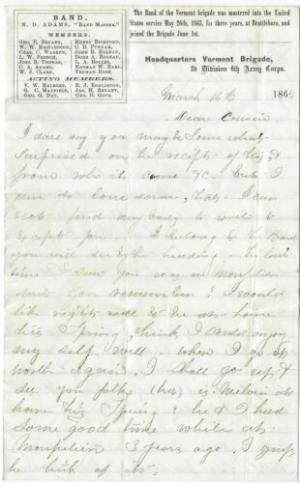 BAND.
N. D. ADAMS, "BAND MASTER."
MEMBERS.
GEO. E. BRYANT,
W. W. HUTCHINSON,
CHAS. C. WARREN,
L. W. FRENCH,
JOHN B. THOMAS,
C. A. ADAMS,
W. F. CLARK,
HENRY BICKFORD,
C. B. PUTNAM,
JOHN H. HOLDAY,
L. A. ROGERS,
TRUMAN ROSS.
ACTING MEMBERS.
G. C. MAXFIELD,
GEO. G. DAY,
JAS. H. BRYANT,
The Band of the Vermont brigade was mustered into the United
States service May 26th, 1863, for three years, at Brattleboro, and
joined the Brigade June 1st.
Headquarters Vermont Brigade,
2d Division 6th Army Corps.
March 16th 186
Dear Cousin
I dare say you may be some what
surprised on the receipt of this &
from who it came &c. but I
am so lone some, that I can
not find any body to write to
except you. I belong to the Band
you will see by the heading. The last
time I saw you was in
can remember? I would
like right well to be at home
this Spring, think I could enjoy
my self well. when I go
north again. I shall go up &
see you folks is Melvin at
home this Spring? he & I had
some good time while at
Montpelier 3 years ago. I guess
he think of it.